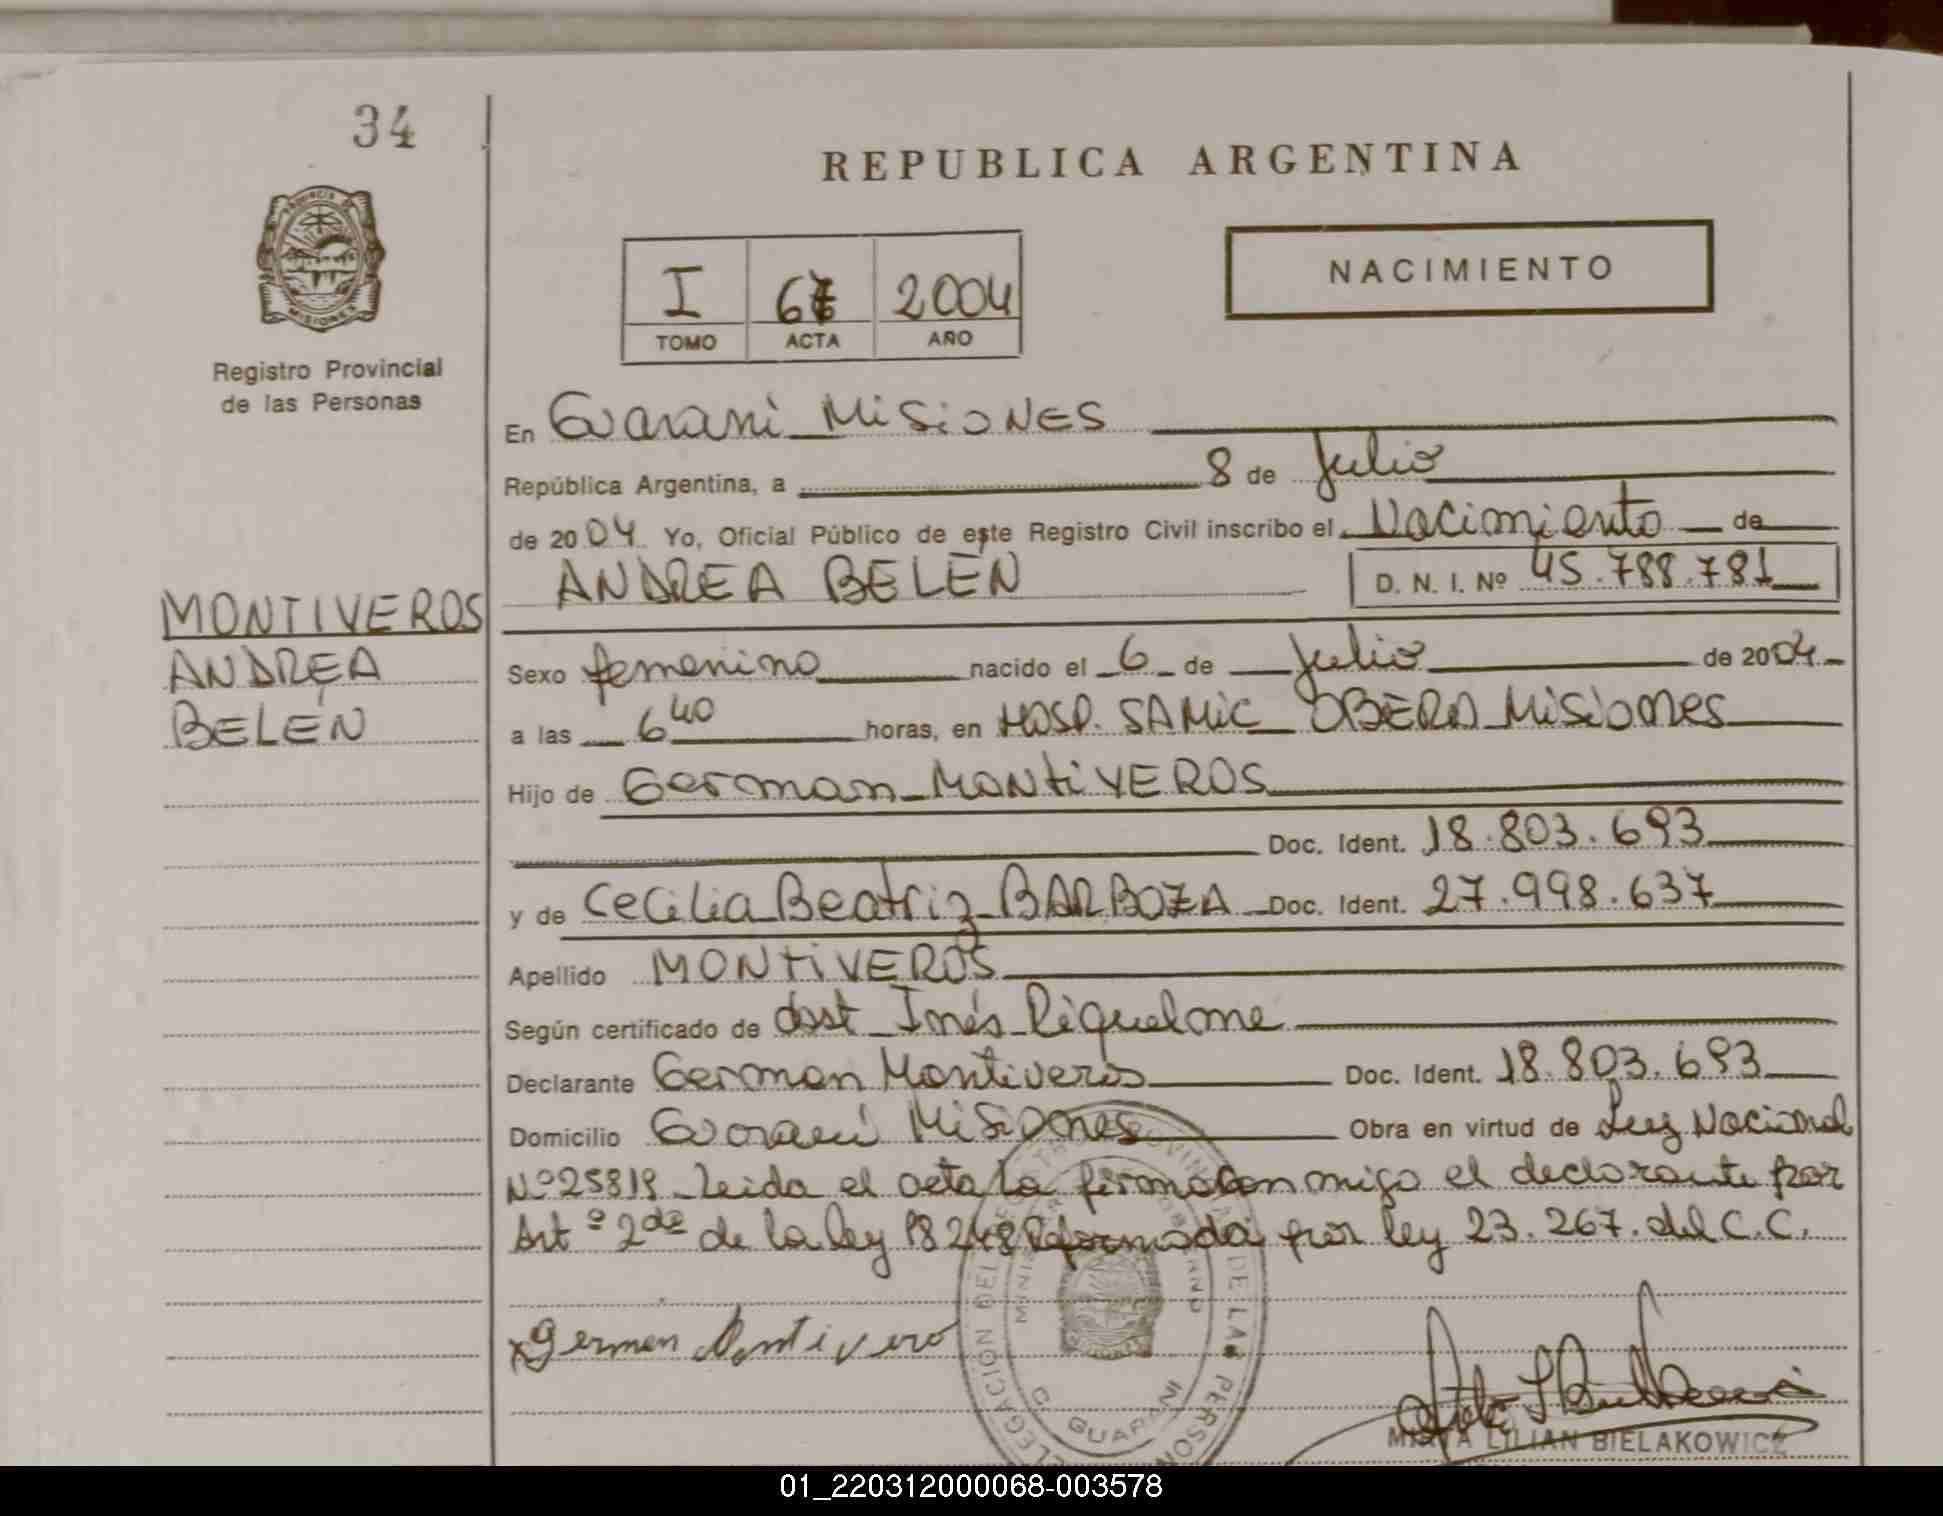 34
REPUBLICA ARGENTINA
PROVINCIA DE
MISIONES
I 2004
TOMO ACTA AÑO
NACIMIENTO
Registro Provincial
de las Personas
En Guarani Misiones
República Argentina, a 8 de Julio
de 2004 Yo, Oficial Público de este Registro Civil inscribo el Nacimiento de
ANDREA BELÉN D. N. I. Nº 45.788.781
MONTIVEROS
ANDREA
BELÉN
Sexo femenino nacido el 6 de Julio de 2004
a las 6 40 horas, en HOSP. SAMIC OBERA Misiones
Hijo de German MONTIVEROS
Doc. Ident. 18.803.693
y de Cecilia Beatriz BARBOZA Doc. Ident. 27.998.637
Apellido MONTIVEROS
Según certificado de obst Inés Riquelme
Declarante German Montiveros Doc. Ident. 18.803.693
Domicilio Guarani Misiones Obra en virtud de Ley Nacional
Nº 25819 Leida el acta La firma conmigo el declarante por
Art º 2do de la ley 18248 Reformada por ley 23.267. del C.C.
x German Montivero
DELEGACION DEL REGISTRO PROVINCIAL DE LAS PERSONAS
GUARANI
MIRTA LILIAN BIELAKOWICZ
01_220312000068-003578